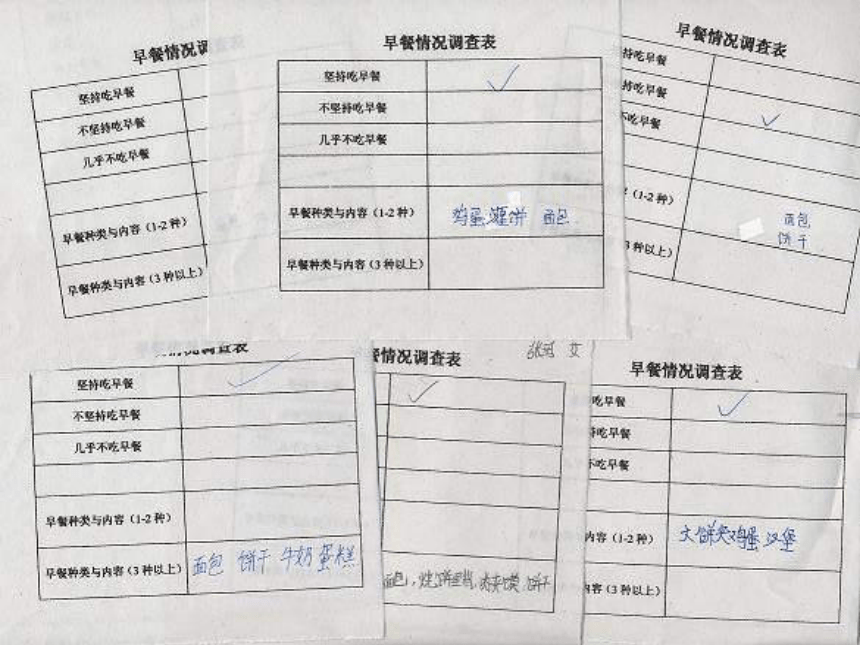 早餐情况调
坚持吃早餐
不坚持吃早餐
几乎不吃早餐
早餐种类与内容（1-2种）
早餐种类与内容（3种以上）
早餐情况调查表
坚持吃早餐 ✓
不坚持吃早餐
几乎不吃早餐
早餐种类与内容（1-2种） 鸡蛋灌饼 面包
早餐种类与内容（3种以上）
早餐情况调查表
持吃早餐
持吃早餐
不吃早餐 ✓
（1-2种） 面包
饼干
3种以上）
情况调查表
坚持吃早餐 ✓
不坚持吃早餐
几乎不吃早餐
早餐种类与内容（1-2种）
早餐种类与内容（3种以上） 面包 饼干 牛奶 蛋糕
餐情况调查表
✓
面包，烧饼里脊，肉夹馍，饼干
早餐情况调查表
吃早餐 ✓
持吃早餐
不吃早餐
内容（1-2种） 大饼夹鸡蛋 汉堡
内容（3种以上）